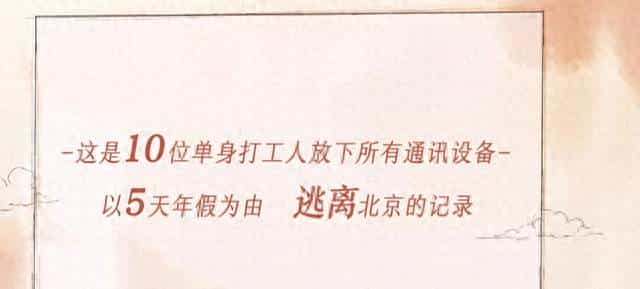 -这是10位单身打工人放下所有通讯设备-
以5天年假为由 逃离北京的记录